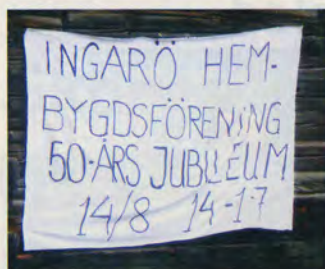 INGARÖ HEM-
BYGDSFÖRENING
50-ÅRS JUBILEUM
14/8 14-17